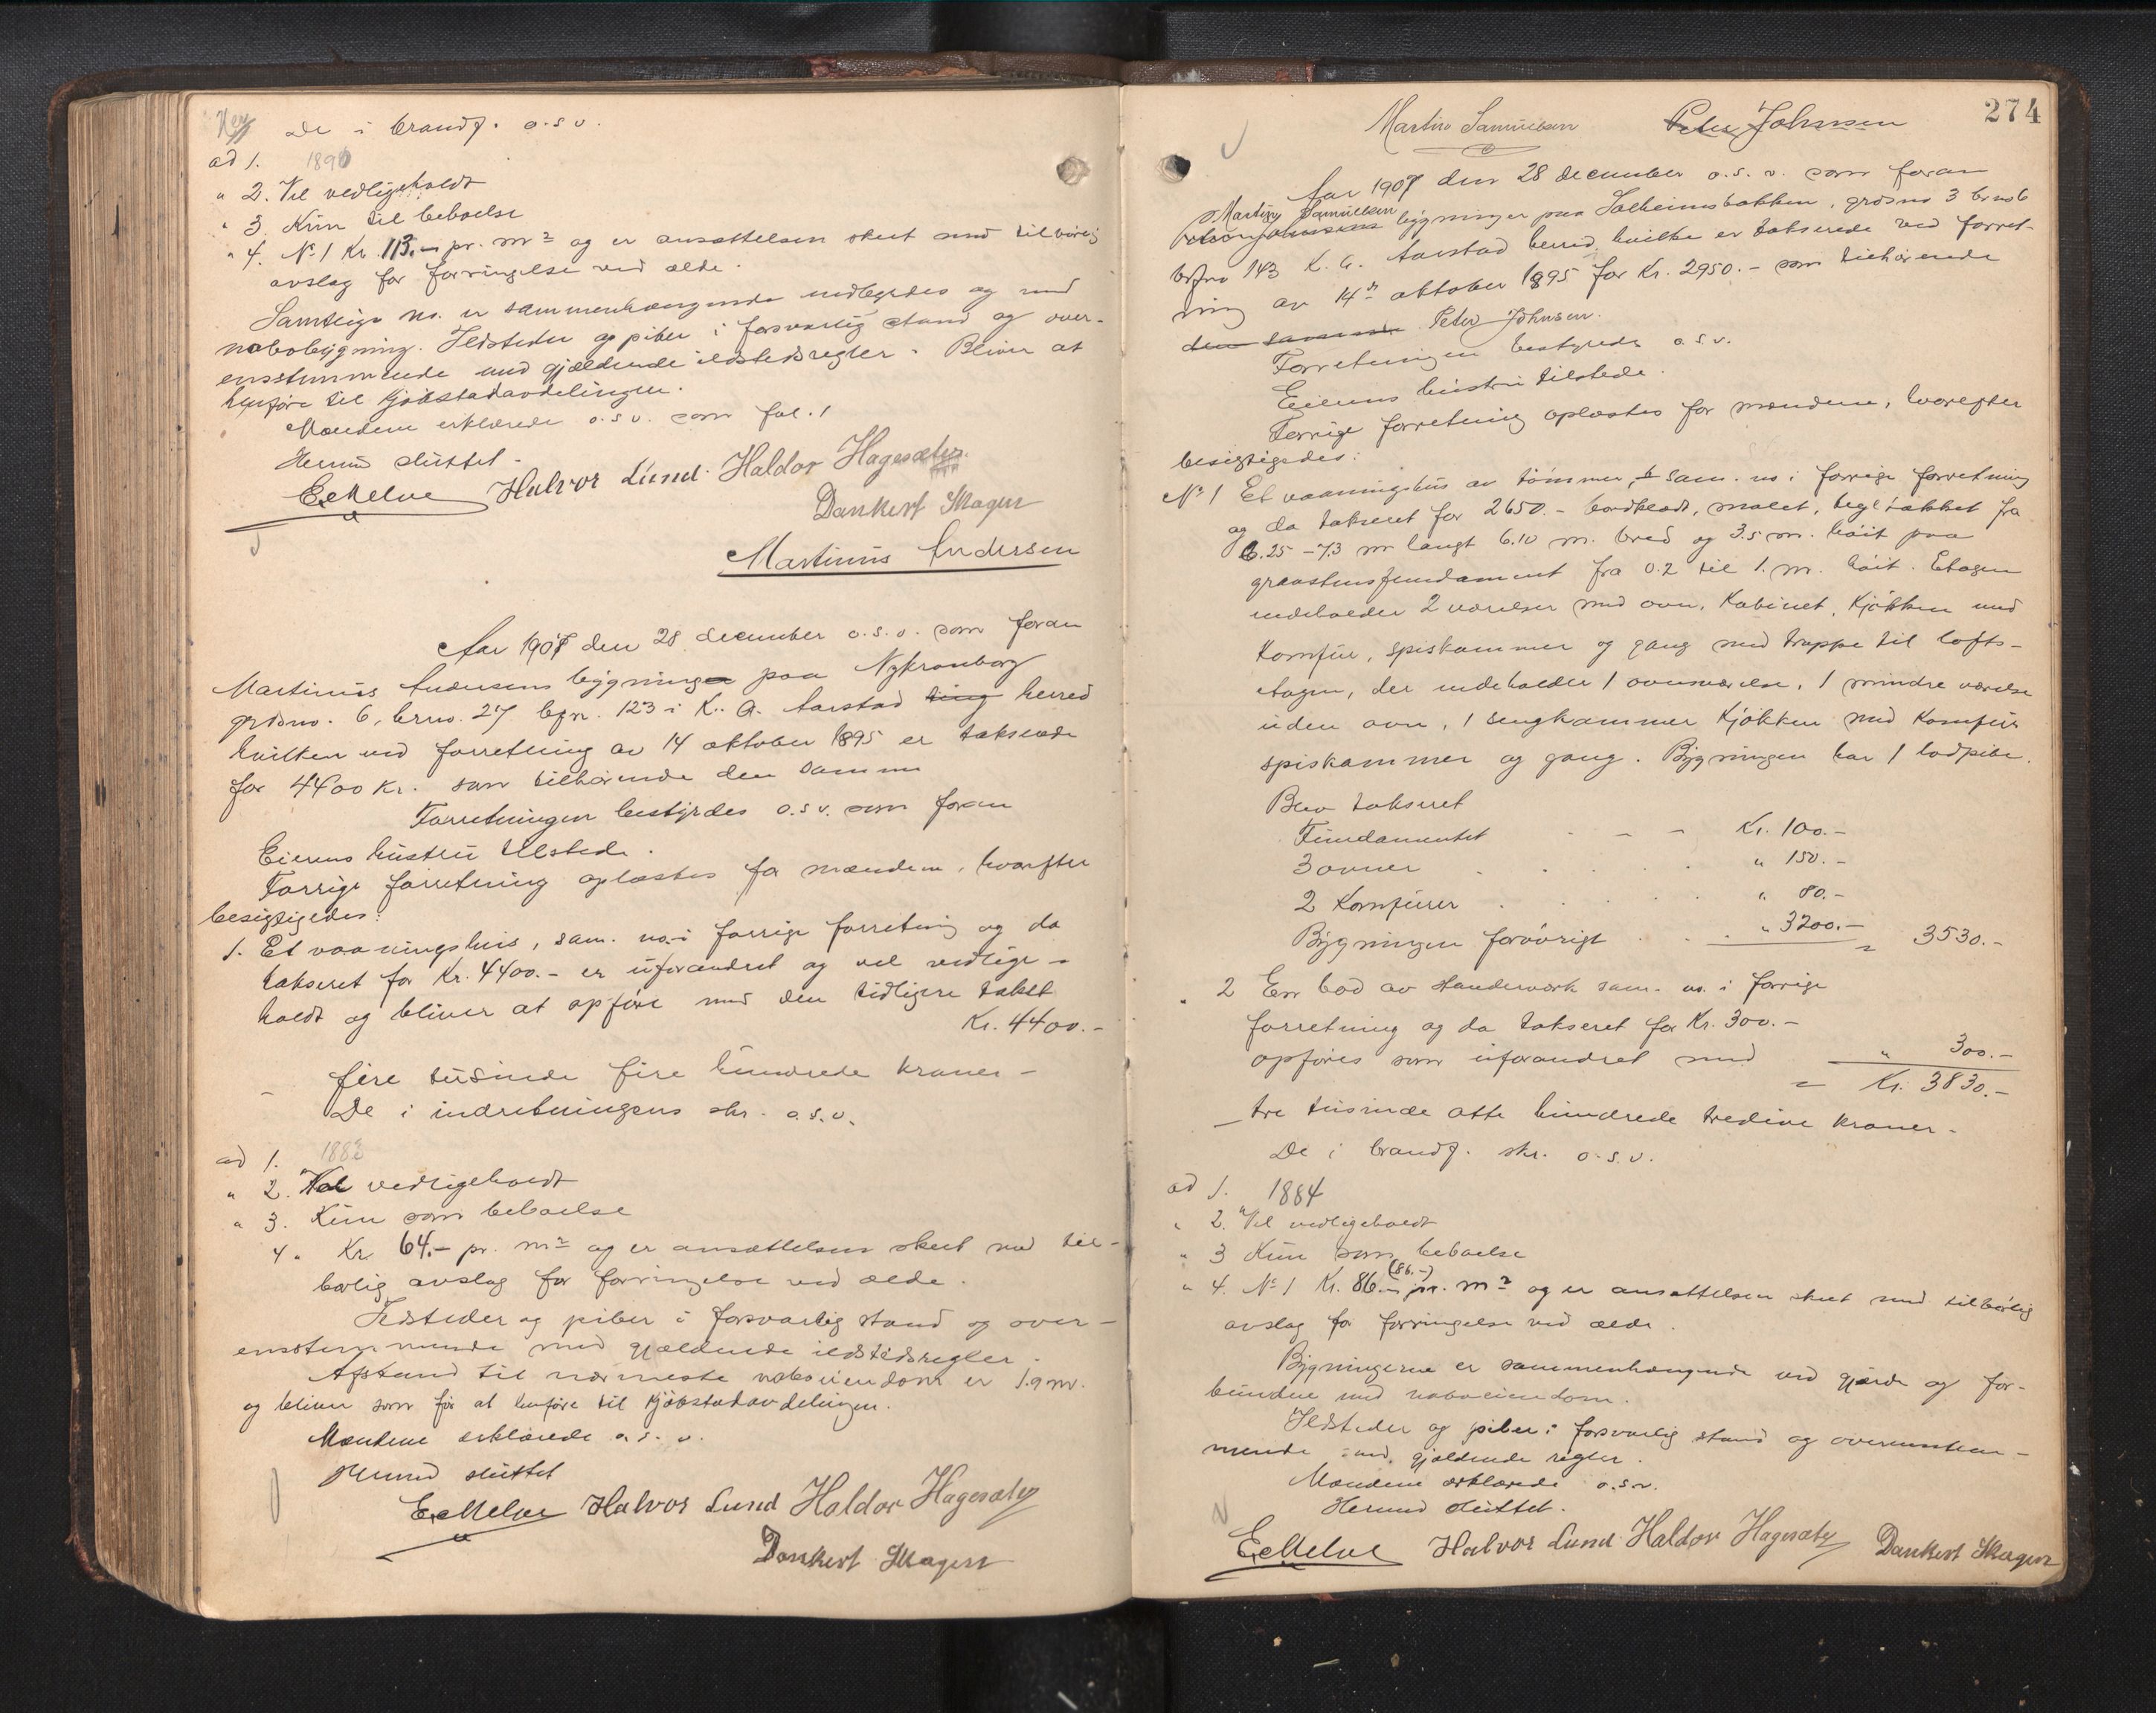 De i brandf. o.s.v.
ad 1. 1890
" 2. Vel vedligeholdt
" 3. Kun til beboelse
" 4. No 1 Kr. 113.- pr. m2 og er ansættelsen skeet med tilbørlig
avslag for forringelse ved ælde.
Samtlige no. er sammenhængende indbyrdes og med
nabobygning. Ildsteder og piber i forsvarlig stand og over-
ensstemmende med gjældende ildstedsregler. Bliver at
henføre til kjøbstadavdelingen.
Mændene erklærede o.s.v. som fol. 1
Hermed sluttet.
Halvor Lund. Haldor Hagesæter
Dankert Skagen
Martinus Andersen
Aar 1907 den 28 december o.s.v. som foran
Martinus Andersens bygning paa Nykronborg
grdsno. 6, brno. 27 bfnr. 123 i K. G. Aarstad ting herred
hvilken ved forretning av 14 oktober 1895 er takserede
for 4400 Kr. som tilhørende den samme
Forretningen bestyrdes o.s.v. som foran
Eierens hustru tilstede.
Forrige forretning oplæstes for mændene, hvorefter
besigtigedes:
1. Et vaaningshus, sam. no. i forrige forretning og da
takseret for Kr. 4400.- er uforandret og vel vedlige-
holdt og bliver at opføre med den tidligere takst
Kr. 4400.-
fire tusinde fire hundrede kroner -
De i indretningens skr. o.s.v.
ad 1. 1882
" 2. Vel vedligeholdt
" 3. Kun som beboelse
4 " Kr. 64.- pr. m2 og er ansættelsen skeet med til-
børlig avslag for forringelse ved ælde.
Ildsteder og piber i forsvarlig stand og over-
ensstemmende med gjældende ildstedsregler.
Afstand til nærmeste naboeiendom er 1.9 m.
og bliver som før at henføre til kjøbstadavdelingen.
Mændene erklærede o.s.v.
Hermed sluttet
Halvor Lund Haldor Hagesæter
Dankert Skagen
274
Martin Samuelsen Peter Johnsen
Aar 1907 den 28 december o.s.v. som foran
Martin Samuelsen
Peter Johnsens bygninger paa Solheimsbakken, grdsno 3 brno 6
bfno 143 K. G. Aarstad herred, hvilke er takserede ved forret-
ning av 14de oktober 1895 for Kr. 2950.- som tilhørende
den samme Peter Johnsen.
Forretningen bestyrede o.s.v.
Eierens hustru tilstede.
Forrige forretning oplæstes for mændene, hvorefter
besigtigedes:
No 1 Et vaaningshus av tømmer, sam. no i forrige forretning
og da takseret for 2650.- bordklædt, malet, tegltækket fra
6.25 - 7.3 m langt 6.10 m. bred og 3.5 m. høit paa
graastensfundament fra 0.2 til 1. m. høit. Etagen
indeholder 2 værelser med ovn, Kabinet, Kjøkken med
Komfur, spiskammer og gang med trappe til lofts-
etagen, der indeholder 1 ovnsværelse, 1 mindre værelse
uden ovn, 1 sengkammer Kjøkken med Komfur
spiskammer og gang. Bygningen har 1 lodpibe.
Blev takseret
Fundamentet - - - Kr. 100.-
3 ovner . . . " 150.-
2 Komfurer . . . " 80.-
Bygningen forøvrigt . . . " 3200.- = 3530.-
" 2 En bod av standerværk sam. no. i forrige
forretning og da takseret for Kr. 300.-
opføres som uforandret med " 300.-
= Kr. 3830.-
tre tusinde otte hundrede tredive kroner -
De i brandf. skr. o.s.v.
ad 1. 1884
" 2. Vel vedligeholdt
" 3 Kun som beboelse
(86.-)
" 4. No 1 Kr. 86.- pr. m2 og er ansættelsen skeet med tilbørlig
avslag for forringelse ved ælde.
Bygningerne er sammenhængende ved gjærde og for-
bundne med naboeiendom.
Ildsteder og piber i forsvarlig stand og overensstem-
mende med gjældende regler.
Mændene erklærede o.s.v.
Hermed sluttet.
Halvor Lund Haldor Hagesæter Dankert Skagen